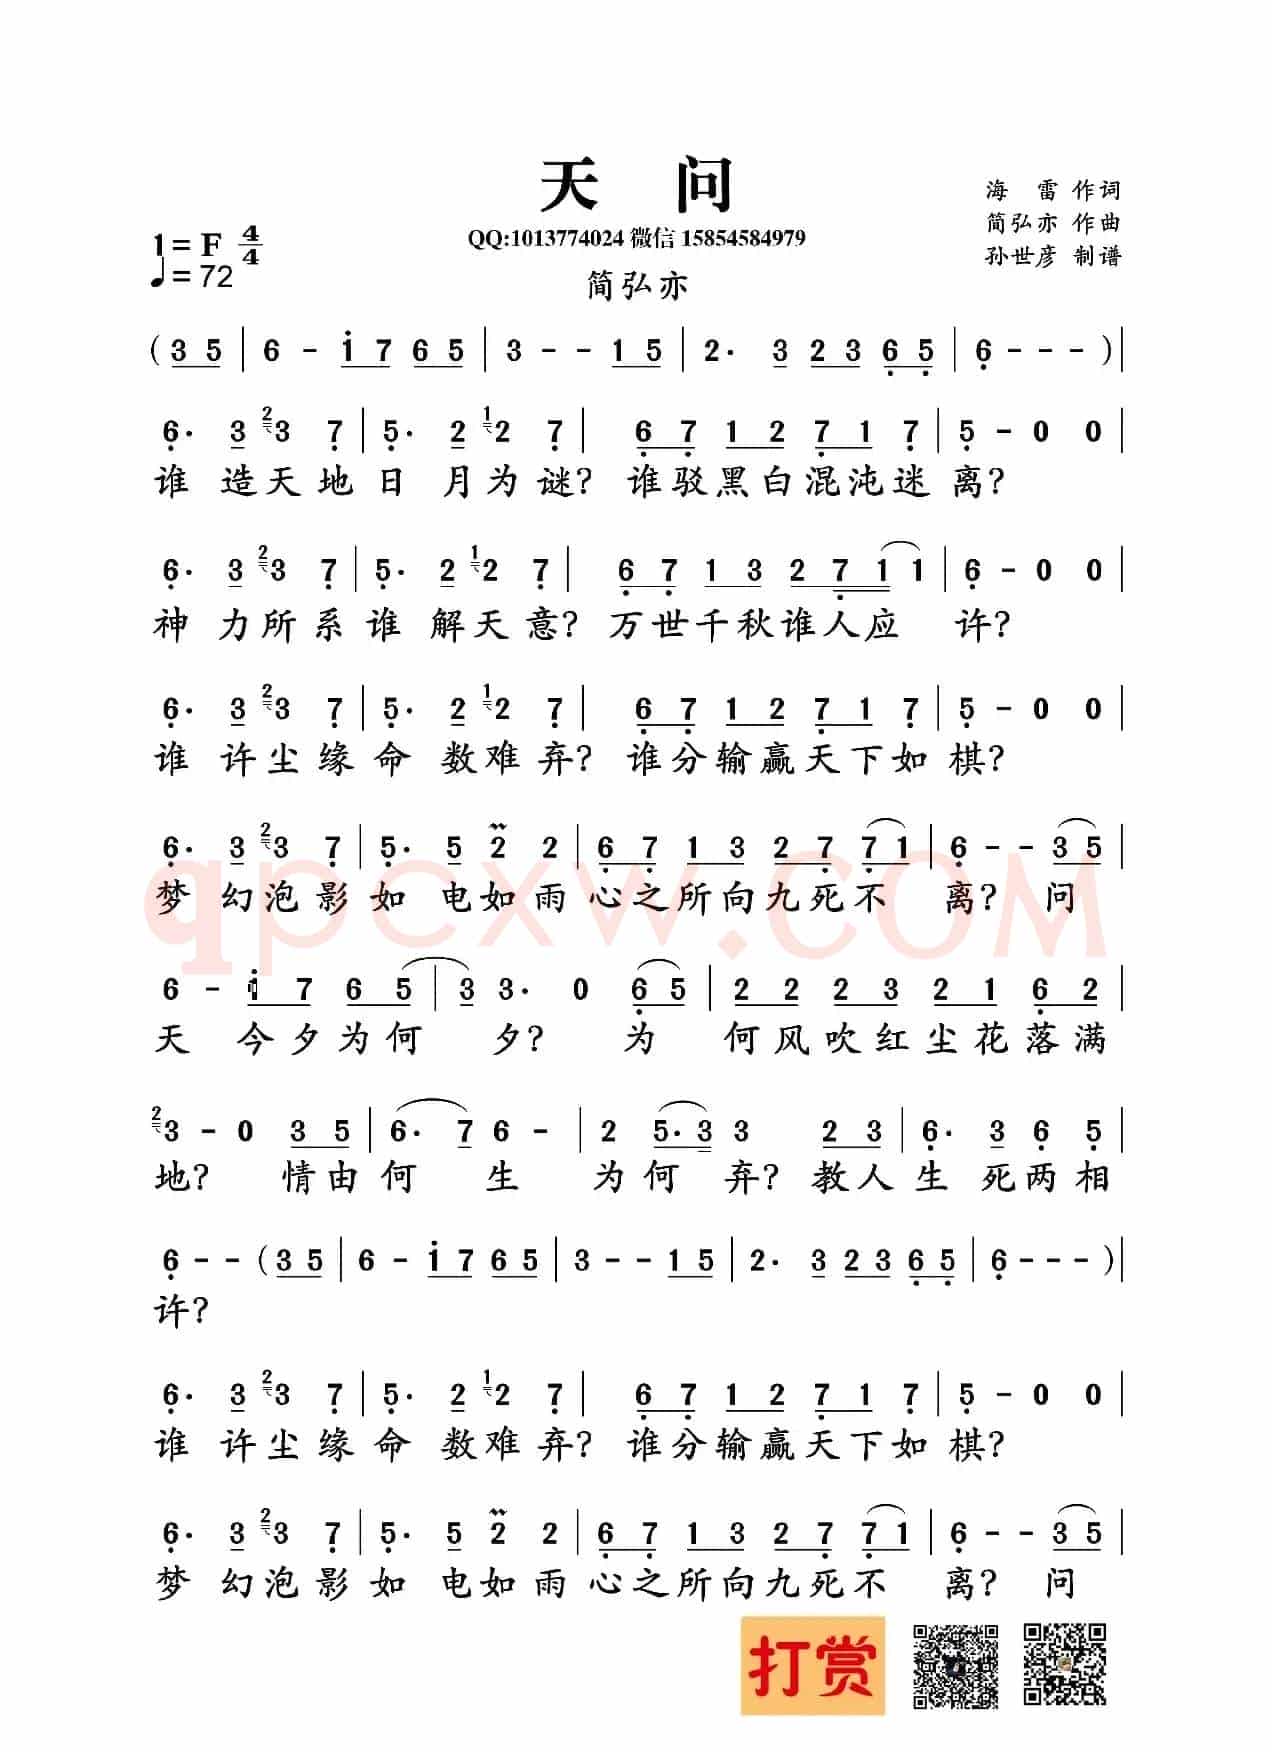 天 问
海 雷 作词
QQ:1013774024 微信 15854584979
简弘亦 作曲
1= F 4/4
孙世彦 制谱
♩= 72
简弘亦
( 3 5 | 6 - i 7 6 5 | 3 - - 1 5 | 2· 3 2 3 6̣ 5̣ | 6̣ - - - ) |
6̣· 3 2 3 7̣ | 5̣· 2 1 2 7̣ | 6̣ 7̣ 1 2 7̣ 1 7̣ | 5̣ - 0 0 |
谁 造天地日 月为谜? 谁驳黑白混沌迷离?
6̣· 3 2 3 7̣ | 5̣· 2 1 2 7̣ | 6̣ 7̣ 1 3 2 7̣ 1 1 | 6̣ - 0 0 |
神 力所系谁 解天意? 万世千秋谁人应 许?
6̣· 3 2 3 7̣ | 5̣· 2 1 2 7̣ | 6̣ 7̣ 1 2 7̣ 1 7̣ | 5̣ - 0 0 |
谁 许尘缘命 数难弃? 谁分输赢天下如棋?
6̣· 3 2 3 7̣ | 5̣· 5 2 2 | 6̣ 7̣ 1 3 2 7̣ 7̣ 1 | 6̣ - - 3 5 |
梦 幻泡影如 电如雨心之所向九死不 离? 问
6 - i 7 6 5 | 3 3· 0 6̣ 5 | 2 2 2 3 2 1 6̣ 2 |
天 今夕为何 夕? 为 何风吹红尘花落满
2 3 - 0 3 5 | 6· 7 6 - | 2 5· 3 3 2 3 | 6̣· 3 6̣ 5̣ |
地? 情由何 生 为何 弃? 教人生 死两相
6̣ - - ( 3 5 | 6 - i 7 6 5 | 3 - - 1 5 | 2· 3 2 3 6̣ 5̣ | 6̣ - - - ) |
许?
6̣· 3 2 3 7̣ | 5̣· 2 1 2 7̣ | 6̣ 7̣ 1 2 7̣ 1 7̣ | 5̣ - 0 0 |
谁 许尘缘命 数难弃? 谁分输赢天下如棋?
6̣· 3 2 3 7̣ | 5̣· 5 2 2 | 6̣ 7̣ 1 3 2 7̣ 7̣ 1 | 6̣ - - 3 5 |
梦 幻泡影如 电如雨心之所向九死不 离? 问
打赏
qpcxw.COM